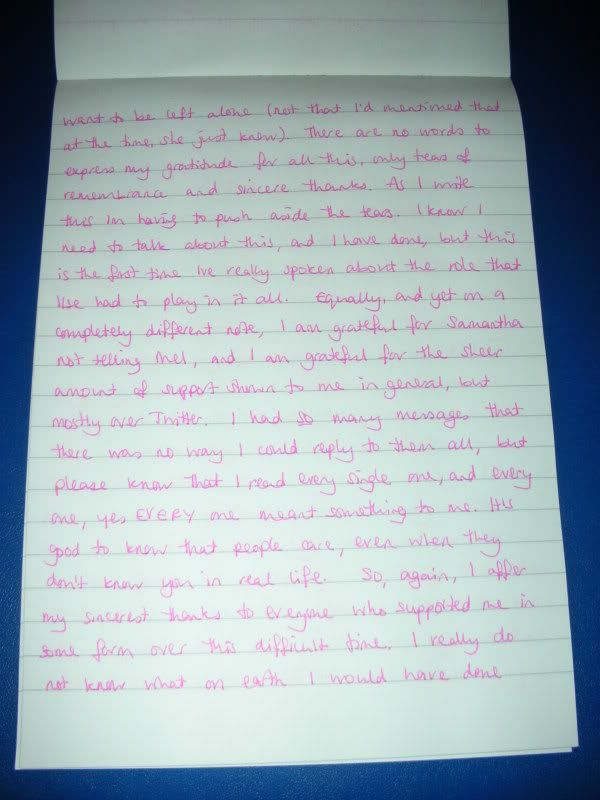 want to be left alone (not that I'd mentioned that
at the time, she just knew). There are no words to
express my gratitude for all this, only tears of
remembrance and sincere thanks. As I write
this Im having to push aside the tears. I know I
need to talk about this, and I have done, but this
is the first time Ive really spoken about the role that
Ilse had to play in it all. Equally, and yet on a
completely different note, I am grateful for Samantha
not telling Mel, and I am grateful for the sheer
amount of support shown to me in general, but
mostly over Twitter. I had so many messages that
there was no way I could reply to them all, but
please know that I read every single one, and every
one, yes EVERY one meant something to me. Its
good to know that people care, even when they
don't know you in real life. So, again, I offer
my sincerest thanks to everyone who supported me in
some form over this difficult time. I really do
not know what on earth I would have done